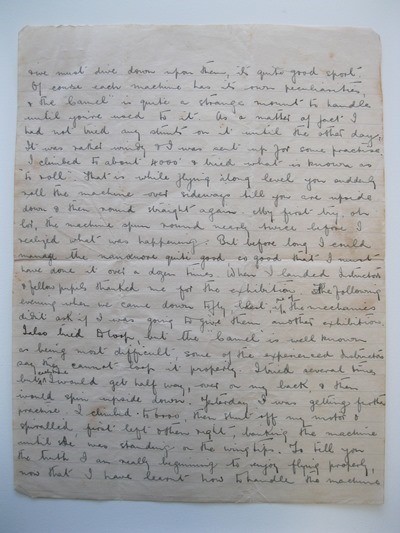 & we must dive down upon them, it's quite good sport.
Of course each machine has its own peculiarities,
& the Camel is quite a strange mount to handle
until you're used to it. As a matter of fact I
had not tried my stunts on it until the other day,
It was rather windy & I was sent up for some practise
I climbed to about 4000' & tried what is known as
to "roll". That is while flying along level you suddenly
roll the machine over sideways till you are upside
down & then round straight again. My first try, oh
lor, the machine spun round nearly twice before I
realized what was happening. But before long I could
manage the manœuvre quite good so good that I must
have done it over a dozen times. When I landed Instructors
& fellow pupils thanked me for the exhibition. The following
evening when we came down to fly, one of the mechanics
didn't ask if I was going to give them another exhibition.
I also tried to loop, but the Camel is well known
as being most difficult, some of the experienced Instructors
say they cannot loop it properly. I tried several times
but I would get half way, over on my back, & then
would spin upside down. Yesterday I was getting further
practise, I climbed to 6000, then shut off my motor &
spiralled first left & then right, banking the machine
until she was standing on the wing tips. To tell you
the truth I am really beginning to enjoy flying properly,
now that I have learnt how to handle the machines